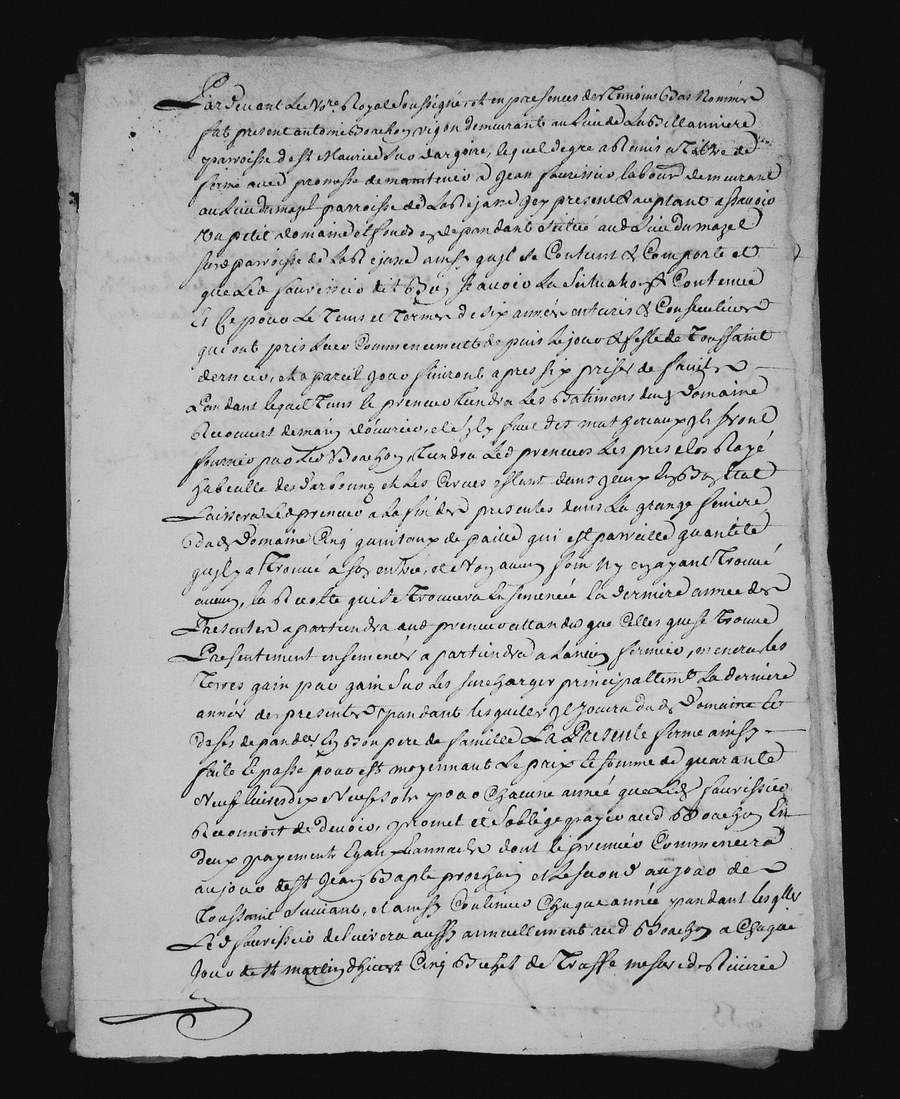 Pardevant Le No.re Royal Soussigné et en presences des Temoins Bas Nommés
fut present antoine Boachon vigon demeurant au Lieu de La Billanniere
parroisse de St Maurice Sur dargoire, lequel de gré a Remis a Titre de
ferme avec promesse de maintenir a Jean fauressier labour. demeurant
au Lieu du mazel parroisse de La Rejasse Jcy present & acceptant a sçavoir
Un petit domaine et fonds en dependant Situé aud. Lieu du mazel
sus.d parroisse de La Rejasse ainsy quil se Contient & Comporte et
que Led. fauressier dit Bien sçavoir La Scituation & Contenue
Et Ce pour Le Tems et Terme de Six années entieres & Consecutives
qui ont pris Leur Commencement depuis le jour & feste de Toussaint
dernier, et a pareil jour finiront apres six prises de fruits
Pendant lequel Tems le preneur tiendra Les Batiments dud. Domaine
Recouvert de main d'ouvrier, et sil y faut des matheriaux ils seront
fournis par led. Boachon, tiendra Led. preneur Les pres clos Rayé
habeulle des darbouns et Les Cerves estant dans Jceux En Bon Etat
Laissera Led. preneur a La fin des presentes dans La grange feniere
dud. Domaine Cinq quintaux de paille qui est pareille quantité
quil y a Trouvé a son entrée, et n'y aucun foin n'y en ayant Trouvé
aucun, la Recolte que se trouvera Ensemencée La derniere année des
Presentes apartiendra aud. preneur attendu que Celles que se trouve
Presentement ensemencés apartiendra a Lancien fermier, menera les
Terres gain par gain Sans Les surcharger principallem.t La derniere
année des presentes pendant lesquelles Jl Jouira dud. Domaine et
de ses depandces En Bon pere de famille La Presente ferme ainsy
faite & passé pour est moyennant Le prix & somme de quarante
Neuf livres dix Neuf sols pour Chacune année que Led. fauressier
Reconnoit de devoir, promet et s'oblige payer aud. Boachon En
deux payements Egaux & annuels dont le premier Commencera
au jour de St Jean Baptte prochain et Le second au jour de
Toussaint Suivant, et ainsy Continuer Chaque année pendant lesq.lles
Led. fauressier delivrera aussy annuellement aud. Boachon a Chaque
Jour de St martin d'hivert Cinq Bichet de Truffe mesure de Riverie